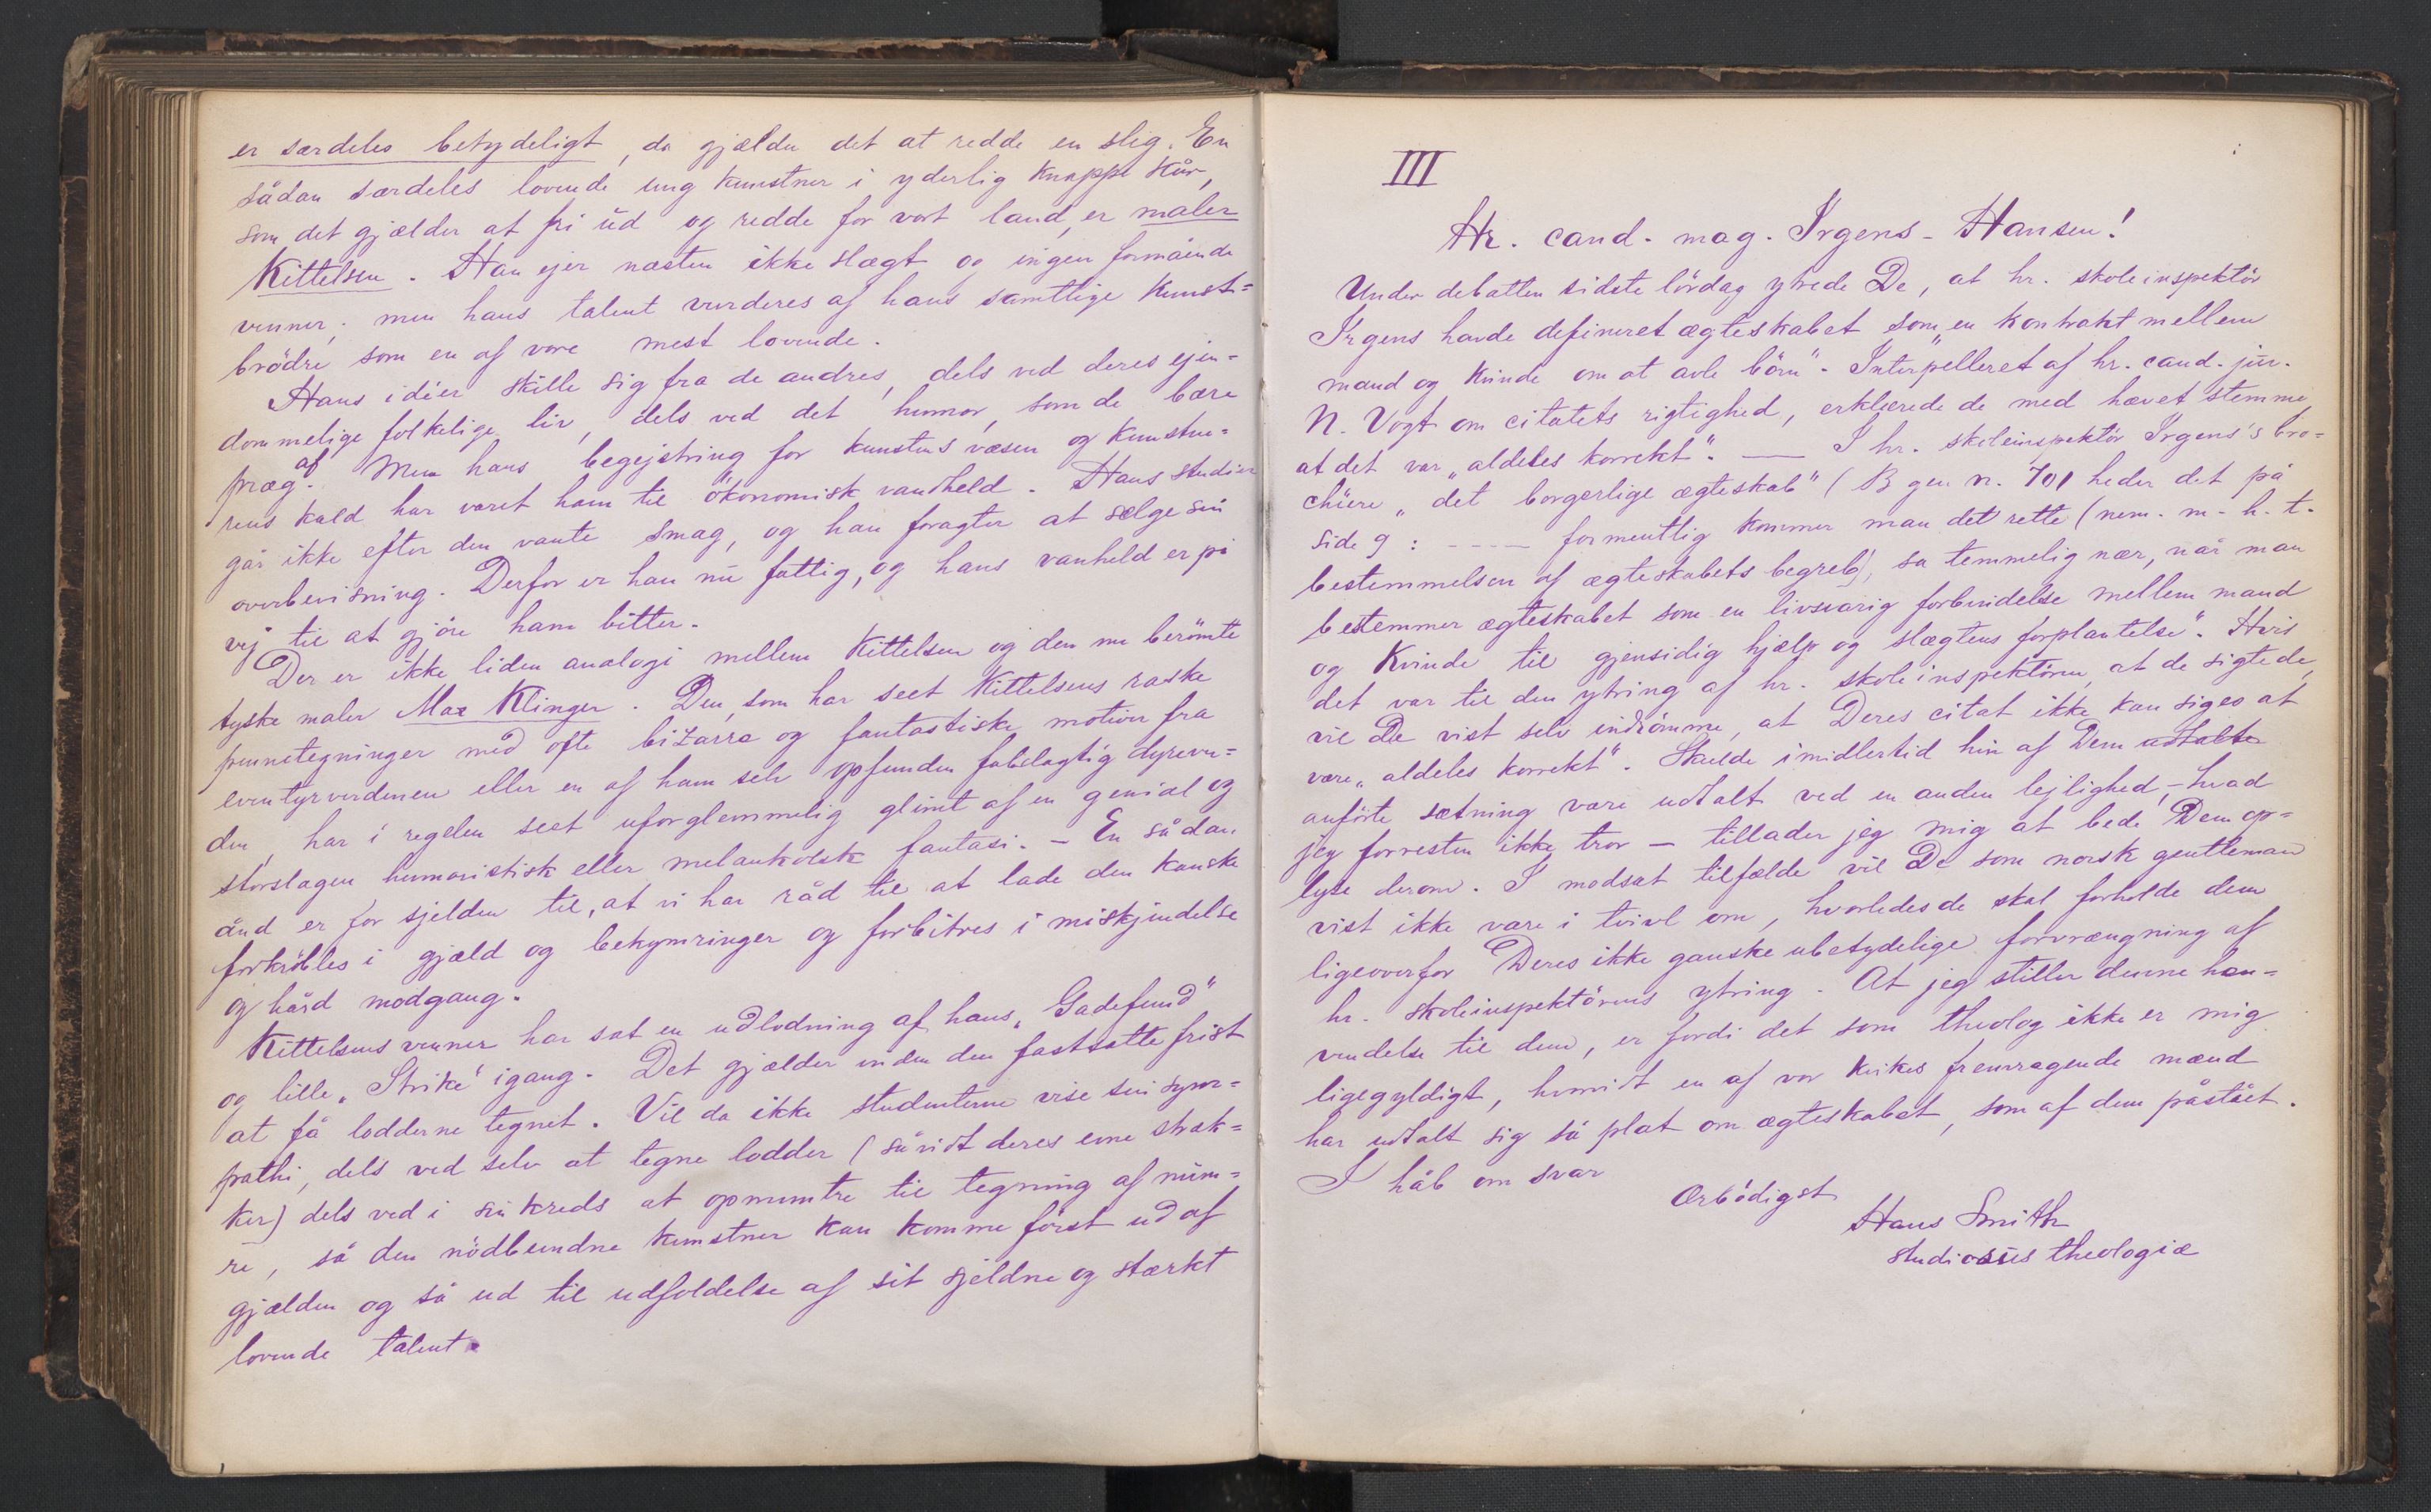 er særdeles betydeligt, da gjælder det at redde en slig. En
sådan særdeles lovende ung kunstner i yderlig knappe kår,
som det gjælder at fri ud og redde for vort land, er maler
Kittelsen. Han ejer næsten ikke slægt og ingen formående
venner; men hans talent vurderes af hans samtlige kunst=
brödre som en af vore mest lovende.
Hans idéer skille sig fra de andres, dels ved deres ejen=
dommelige folkelige liv, dels ved det humor, som de bære
præg af. Men hans begejstring for kunstens væsen og kunstne=
rens kald har været ham til ökonomisk vanheld. Hans studier
går ikke efter den vante smag, og han foragter at sælge sin
overbevisning. Derfor er han nu fattig, og hans vanheld er på
vej til at gjöre ham bitter.
Der er ikke liden analogi mellem Kittelsen og den nu berömte
tyske maler Max Klinger. Den, som har seet Kittelsens raske
pennetegninger med ofte bizarre og fantastiske motiver fra
eventyrverdenen eller en af ham selv opfunden fabelagtig dyrever=
den, har i regelen seet uforglemmelig glimt af en genial og
storslagen humoristisk eller melankolsk fantasi. – En sådan
ånd er for sjelden til, at vi har råd til at lade den kanske
forkröbles i gjæld og bekymringer og forbitres i miskjendelse
og hård modgang.
Kittelsens venner har sat en udlodning af hans „Gadefund"
og lille „Strike" igang. Det gjælder inden den fastsatte frist
at få lodderne tegnet. Vil da ikke studenterne vise sin sym=
pathi, dels ved selv at tegne lodder (såvidt deres evne stræk=
ker) dels ved i sin kreds at opmuntre til tegning af num=
re, så den nödbundne kunstner kan komme först ud af
gjælden og så ud til udfoldelse af sit sjeldne og stærkt
lovende talent.
III
Hr. cand. mag. Irgens-Hansen!
Under debatten sidste lördag ytrede De, at hr. skoleinspektör
Irgens havde defineret ægteskabet som „en kontrakt mellem
mand og kvinde om at avle börn". Interpelleret af hr. cand. jur.
N. Vogt om citatets rigtighed, erklærede de med hævet stemme
at det var „aldeles korrekt". — I hr. skoleinspektör Irgens's bro=
chüre „det borgerlige ægteskab" (B gen n. 701 heder det på
side 9: ---- formentlig kommer man det rette (nem. m. h. t.
bestemmelsen af ægteskabets begreb), så temmelig nær, når man
bestemmer ægteskabet som en livsvarig forbindelse mellem mand
og kvinde til gjensidig hjælp og slægtens forplantelse". Hvis
det var til den ytring af hr. skoleinspektören, at de sigtede,
vil De vist selv indrömme, at Deres citat ikke kan siges at
være „aldeles korrekt". Skulde imidlertid hin af Dem udtalte
anförte sætning være udtalt ved en anden lejlighed, – hvad
jeg forresten ikke tror – tillader jeg mig at bede Dem op=
lyse derom. I modsat tilfælde vil De som norsk gentleman
vist ikke være i tvivl om, hvorledes de skal forholde dem
ligeoverfor Deres ikke ganske ubetydelige forvrængning af
hr. skoleinspektörens ytring. At jeg stiller denne hen=
vendelse til dem, er fordi det som theolog ikke er mig
ligegyldigt, hvorvidt en af vor kirkes fremragende mænd
har udtalt sig så plat om ægteskabet, som af dem påstået.
I håb om svar
Ærbödigst
Hans Smith
studiosus theologiæ